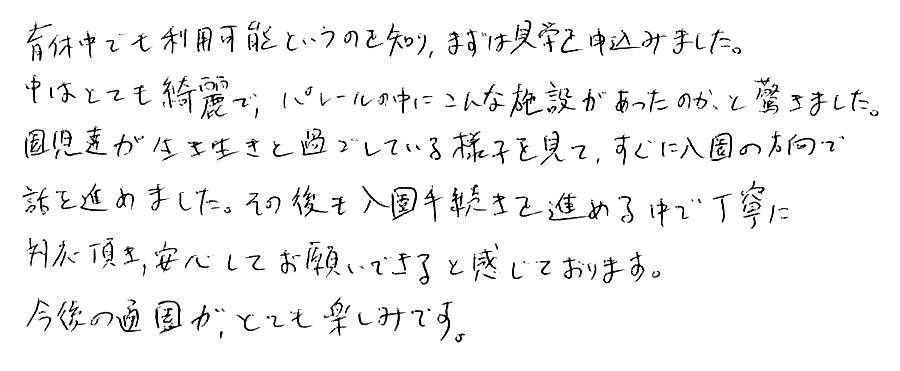 育休中でも利用可能というのを知り、まずは見学を申込みました。
中はとても綺麗で、パレールの中にこんな施設があったのか、と驚きました。
園児達が生き生きと過ごしている様子を見て、すぐに入園の方向で
話を進めました。その後も入園手続きを進める中で丁寧に
対応頂き、安心してお願いできると感じております。
今後の通園が、とても楽しみです。